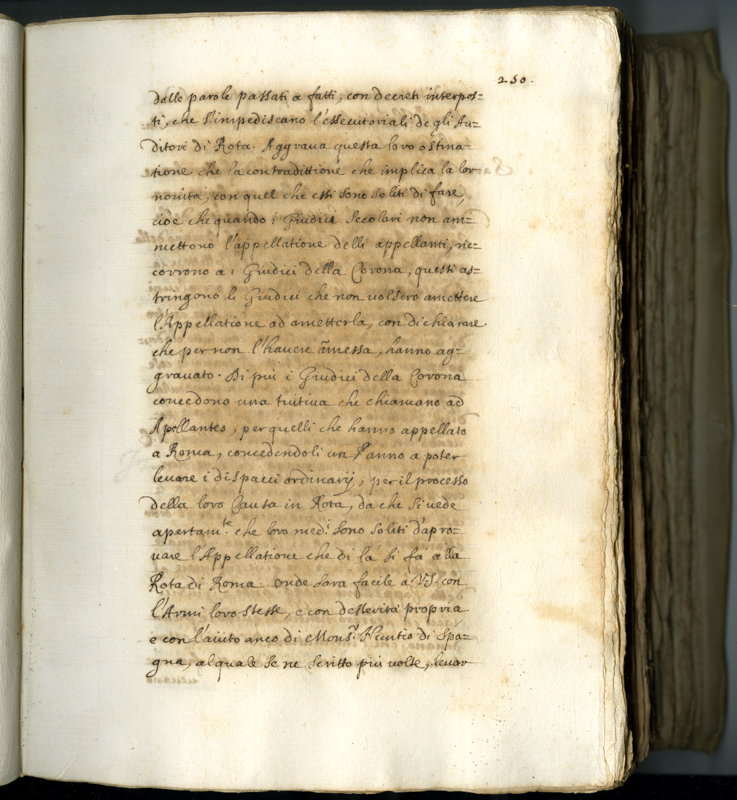 250.
dalle parole passati a fatti, con decreti interpos=
ti, che s'impediscano l'essecutoriali degli Au=
ditori di Rota. Aggrava questa loro ostina=
tione che la contradittione che implica la lor
novita, con quel che essi sono soliti di fare,
cioè che quando i Giudici secolari non am=
mettono l'appellatione delli appellanti, ric=
corrono a i Giudici della Corona, questi as=
tringono li Giudici che non volsero amettere
l'Appellatione ad ametterla, con dichiarare
che per non l'havere am̃essa, hanno ag=
gravato. Di più i Giudici della Corona
concedono una tuitiva che chiamano ad
Apellantes, per quelli che hanno appellato
a Roma, concedendoli un anno a poter
levare i dispacci ordinarij, per il processo
della loro Causa in Rota, da che si vede
apertam.te che loro med.i sono soliti d'apro=
vare l'Appellatione che di là si fa alla
Rota di Roma. Onde sara facile à V.S. con
l'Armi loro stesse, e con desterità propria
e con l'aiuto anco di Mons.r Nuntio di Spa=
gna, al quale se ne scritto più volte, levar